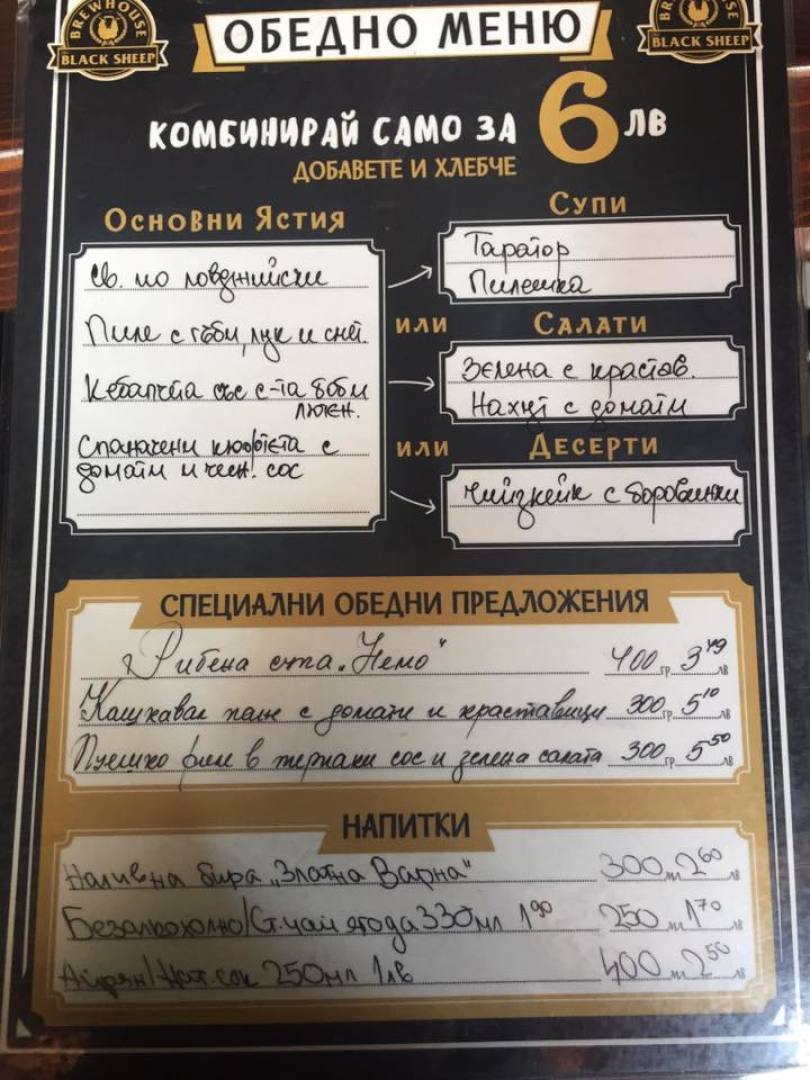 BREWHOUSE
BLACK SHEEP
ОБЕДНО МЕНЮ
BREWHOUSE
BLACK SHEEP
КОМБИНИРАЙ САМО ЗА 6 ЛВ
ДОБАВЕТЕ И ХЛЕБЧЕ
Основни Ястия
Св. по ловджийски
Пиле с гъби, лук и смет.
Кебапчета със с-та боб и
лютен.
Спаначени кюфтета с
домати и чесн. сос
Супи
Таратор
Пилешка
или Салати
Зелена с крастав.
Нахут с домати
или Десерти
Чийзкейк с боровинки
СПЕЦИАЛНИ ОБЕДНИ ПРЕДЛОЖЕНИЯ
Рибена супа „Немо" 400 гр 3 49 лв
Кашкавал пане с домати и краставици 300 гр 5 10 лв
Пуешко филе в терияки сос и зелена салата 300 гр 5 50 лв
НАПИТКИ
Наливна бира „Златна Варна" 300 мл 2 60 лв
Безалкохолно/Ст. чай ягода 330мл 1 90 250 мл 1 70 лв
Айрян/Нат. сок 250мл 1лв 400 мл 2 50 лв